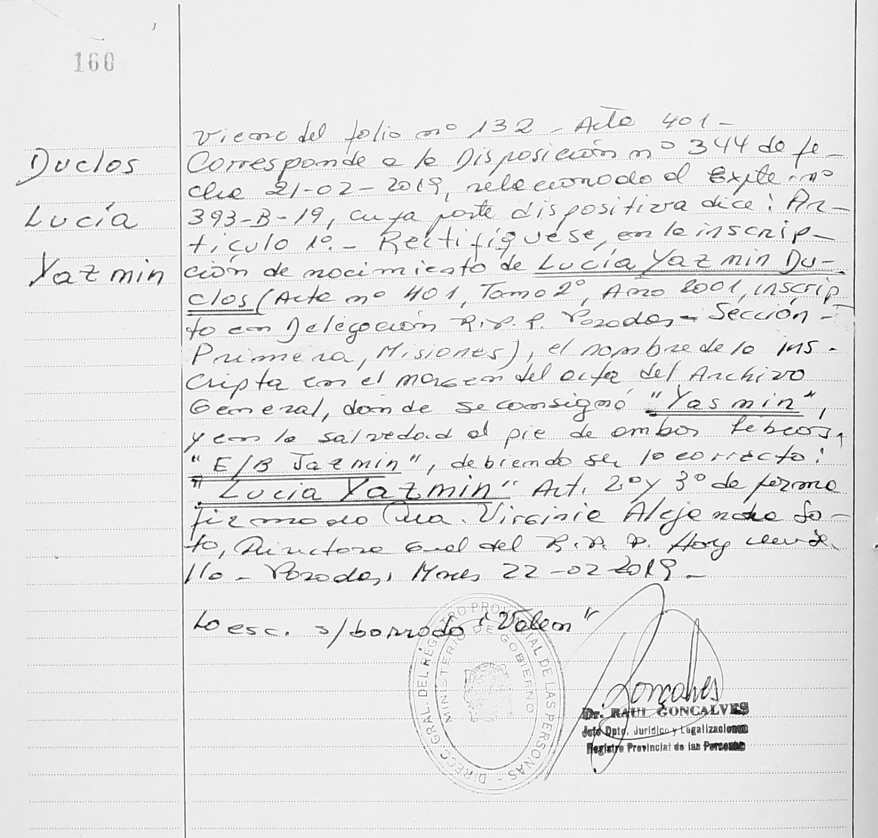 160
Duclos
Lucía
Yazmin
Viene del folio nº 132 - Acta 401 -
Corresponde a la Disposición nº 344 de fe-
cha 21-02-2019, relacionado al Expte. nº
393-B-19, cuya parte dispositiva dice: Ar-
tículo 1º.- Rectifíquese, en la inscrip-
ción de nacimiento de Lucía Yazmin Du-
clos (Acta nº 401, Tomo 2º, Año 2001, inscrip-
to en Delegación R.P.P. Posadas - Sección -
Primera, Misiones), el nombre de la ins-
cripta en el margen del acta del Archivo
General, donde se consignó "Yasmin",
y en la salvedad al pie de ambos
"E/B Jazmin", debiendo ser lo correcto:
"Lucia Yazmin" Art. 2º y 3º de forma
firmado Dra. Virginia Alejandra So-
to, Directora Gral del R.P.P. Hay un se-
llo - Posadas, Mnes 22-02-2019 -
Lo esc. s/borrado "Valen"
DIRECC. GRAL. DEL REGISTRO PROVINCIAL DE LAS PERSONAS -
MINISTERIO DE GOBIERNO
Goncalves
Dr. RAUL GONCALVES
Jefe Dpto. Jurídico y Legalizaciones
Registro Provincial de las Personas